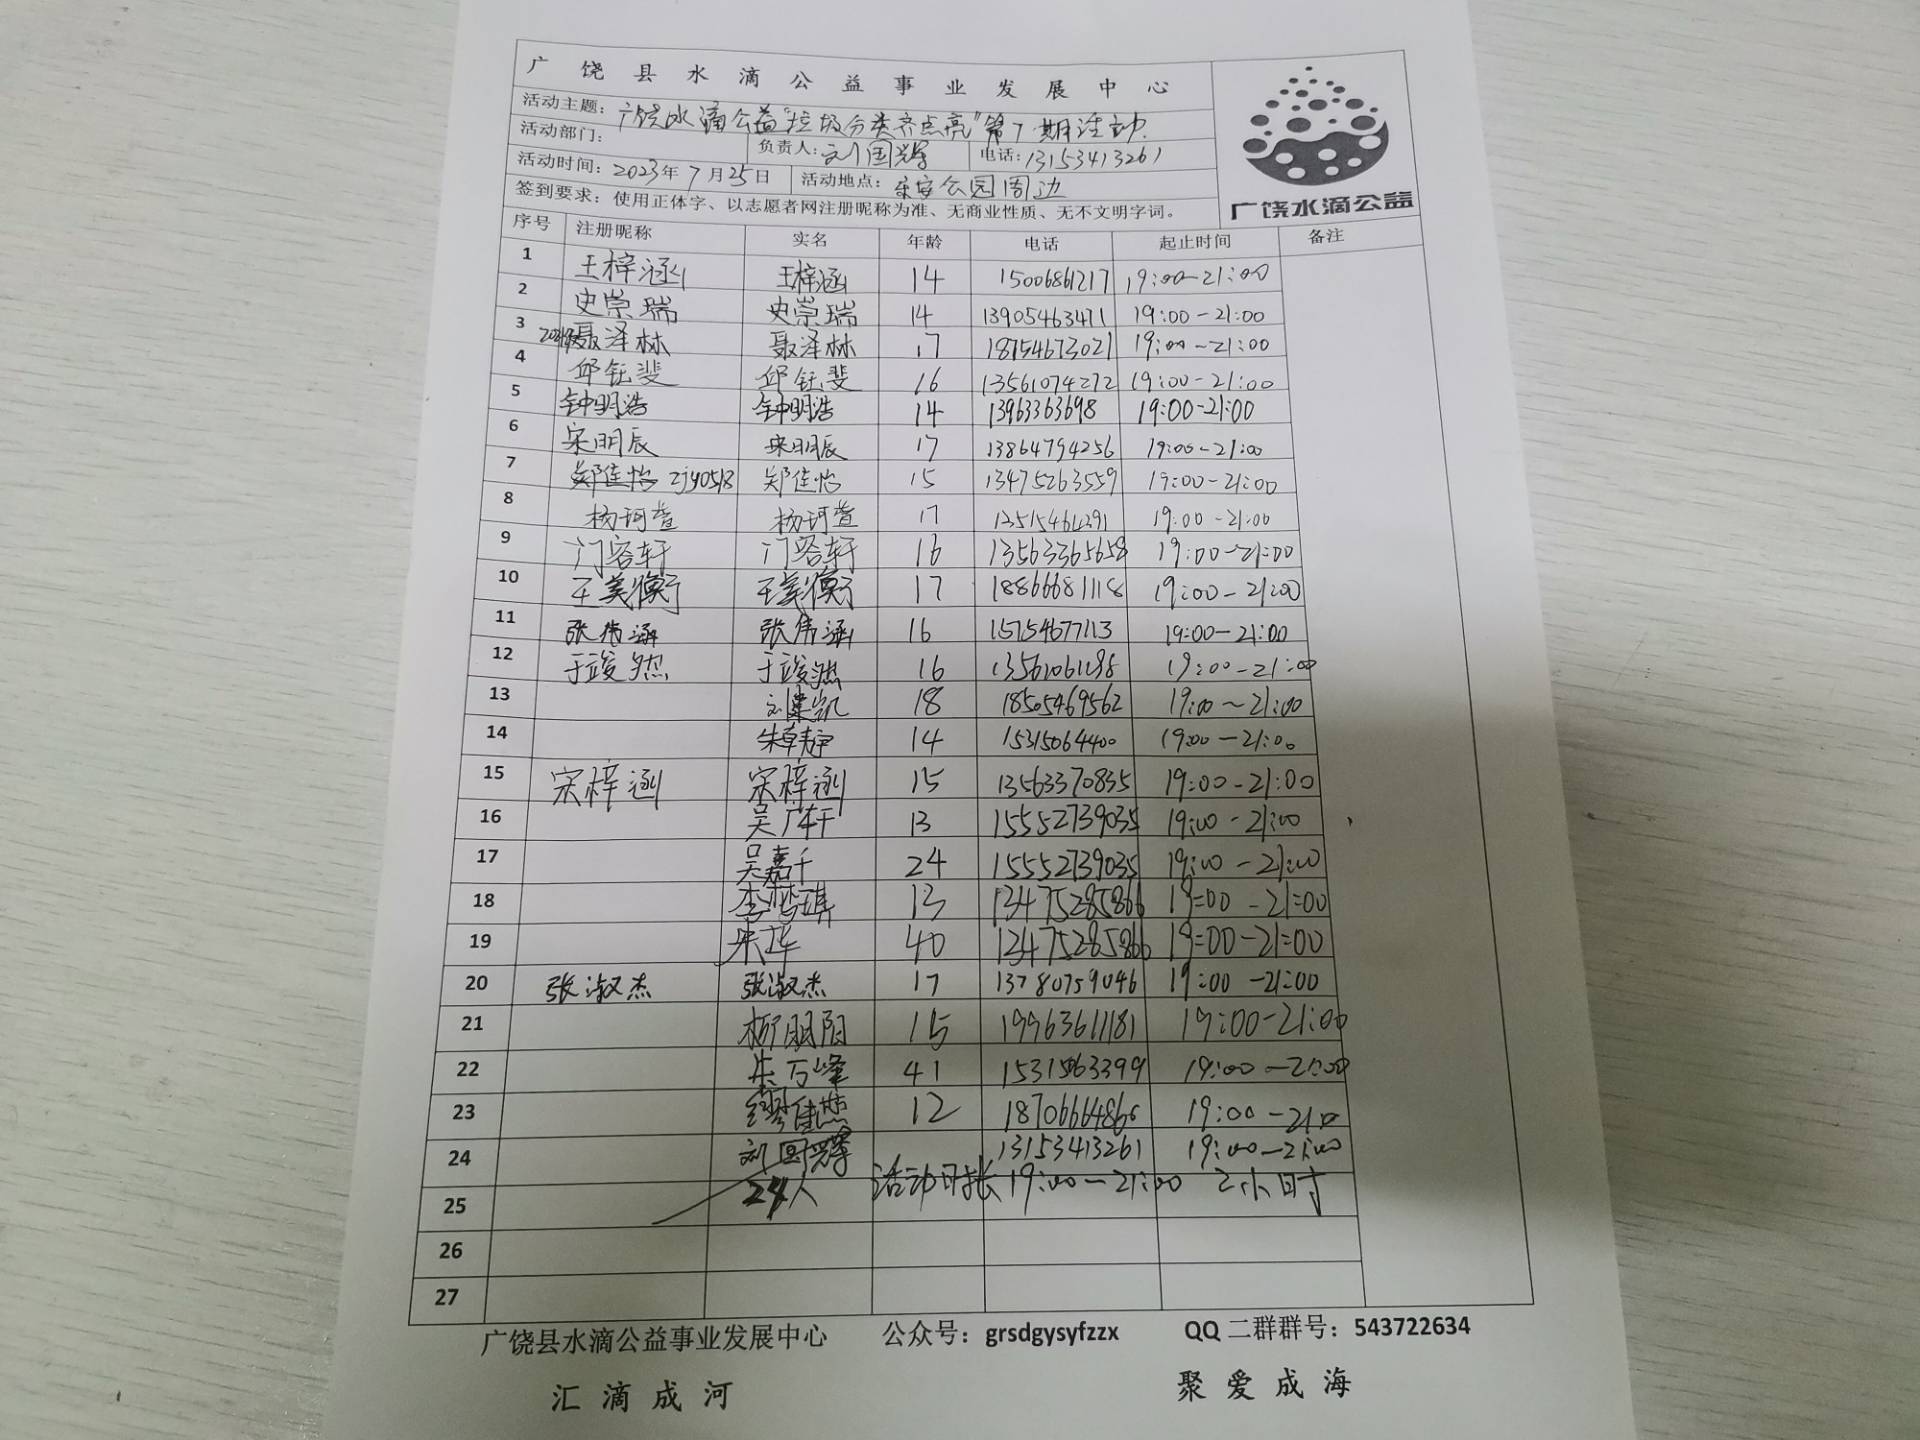 广饶县水滴公益事业发展中心
活动主题: 广饶水滴公益"垃圾分类齐点亮"第7期活动.
活动部门: 负责人: 刘国辉 电话: 13153413261
活动时间: 2023年7月25日 活动地点: 乐安公园周边
签到要求: 使用正体字、以志愿者网注册昵称为准、无商业性质、无不文明字词。
广饶水滴公益
序号 注册昵称 实名 年龄 电话 起止时间 备注
1 王梓涵 王梓涵 14 15006861217 19:00-21:00
2 史崇瑞 史崇瑞 14 13905463471 19:00-21:00
3 聂泽林 聂泽林 17 18754673021 19:00-21:00
4 邱钰斐 邱钰斐 16 13561074272 19:00-21:00
5 钟明浩 钟明浩 14 13963363698 19:00-21:00
6 宋明辰 宋明辰 17 13864794256 19:00-21:00
7 郑佳怡 zjy0518 郑佳怡 15 13475263559 19:00-21:00
8 杨珂萱 杨珂萱 17 19:00-21:00
9 门容轩 门容轩 16 13563365658 19:00-21:00
10 王美衡 王美衡 17 18866681118 19:00-21:00
11 张伟涵 张伟涵 16 15754677113 19:00-21:00
12 于竣然 于竣然 16 13561061198 19:00-21:00
13 刘建凯 18 18505469562 19:00~21:00
14 朱卓静 14 15315064400 19:00-21:00
15 宋梓涵 宋梓涵 15 13563370835 19:00-21:00
16 吴广轩 13 15552739035 19:00-21:00
17 吴嘉千 24 15552739035 19:00-21:00
18 李梦琪 13 13475285866 19:00-21:00
19 宋华 40 13475285866 19:00-21:00
20 张淑杰 张淑杰 17 13780759046 19:00-21:00
21 柳明阳 15 19963611181 19:00-21:00
22 朱万峰 41 15315063399 19:00-21:00
23 12 19:00-21:0
24 刘国辉 13153413261 19:00-21:00
25 24人 活动时长 19:00-21:00 2小时
26
27
广饶县水滴公益事业发展中心 公众号: grsdgysyfzzx QQ二群群号: 543722634
汇滴成河 聚爱成海